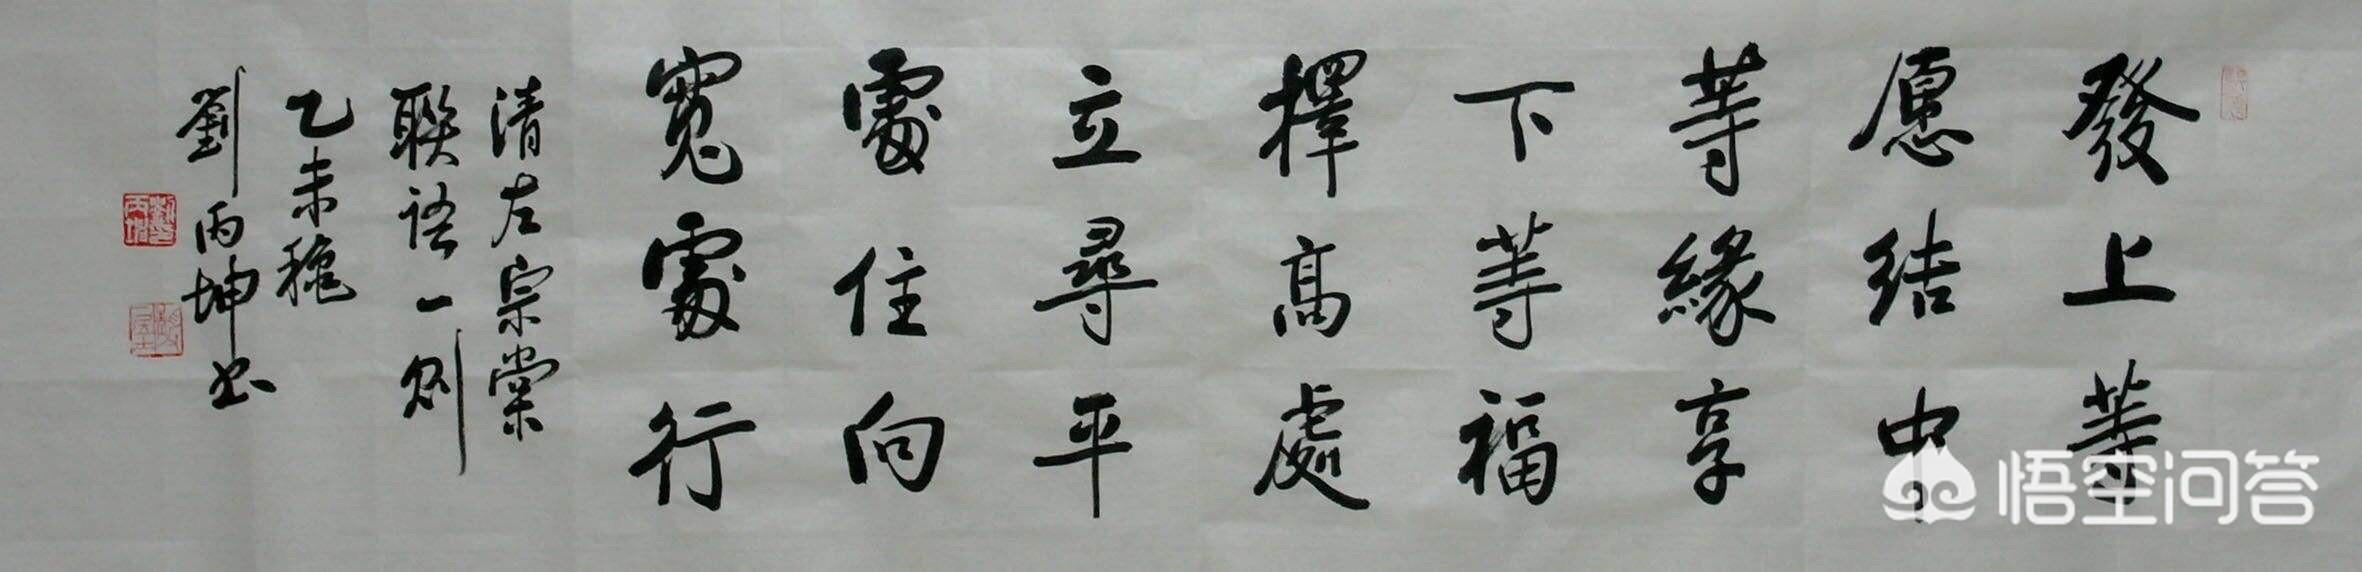 發上等
愿结中
等緣享
下等福
擇高處
立尋平
處住向
寬處行
清左宗棠
聯語一則
乙未穐
劉丙坤书
悟空问答